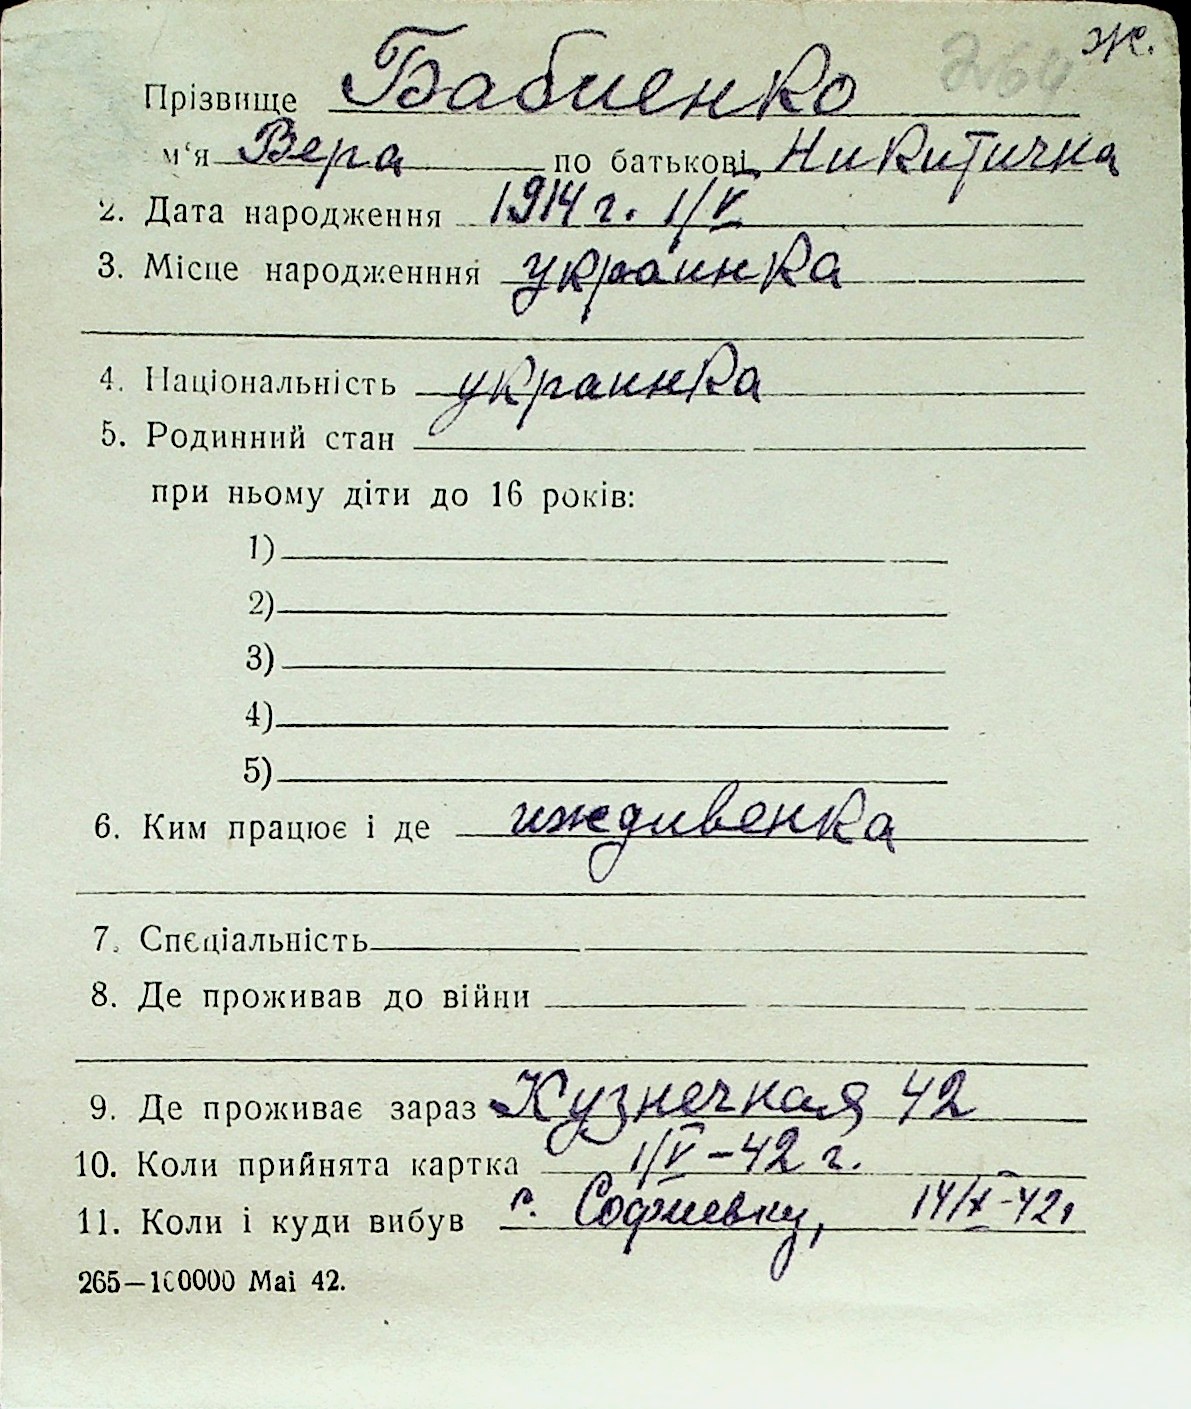 ж.
Прізвище Бабиенко
м‘я Вера по батькові Никитична
2. Дата народження 1914 г. 1/V
3. Місце народженння украинка
4. Національність украинка
5. Родинний стан
при ньому діти до 16 років:
1)
2)
3)
4)
5)
6. Ким працює і де иждивенка
7. Спєціальність
8. Де проживав до війни
9. Де проживає зараз Кузнечная 42
10. Коли прийнята картка 1/V-42 г.
11. Коли і куди вибув с. Софиевку, 14/X-42г
265—100000 Mai 42.